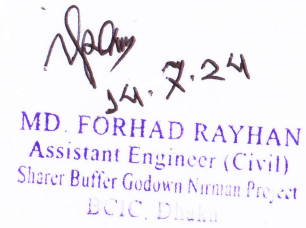 14.7.24
MD. FORHAD RAYHAN
Assistant Engineer (Civil)
Sharer Buffer Godown Nirman Project
BCIC, Dhaka